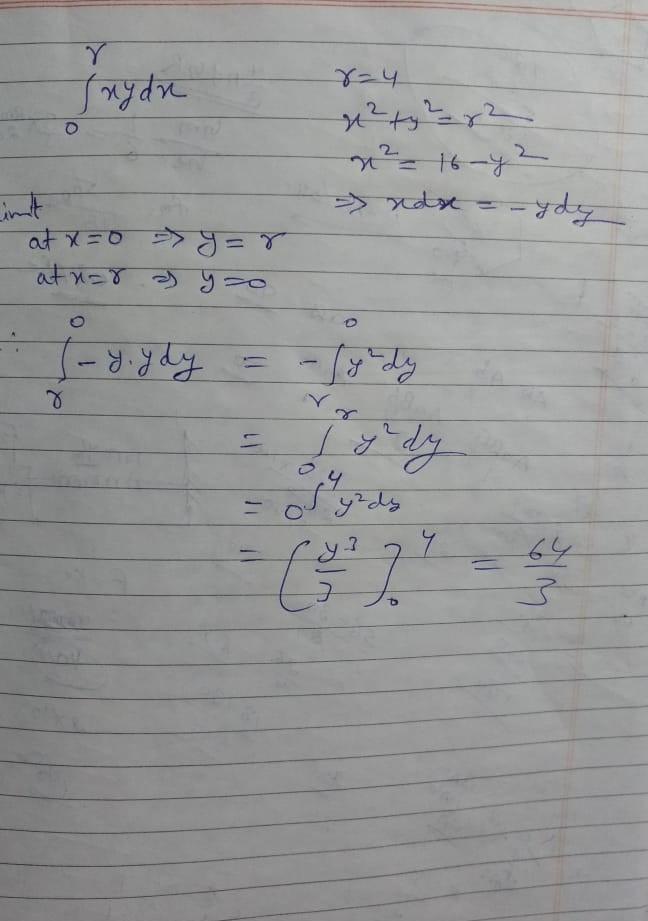 ∫₀^r xy dx
r = 4
x² + y² = r²
x² = 16 - y²
⇒ x dx = - y dy
Limit
at x = 0 ⇒ y = r
at x = r ⇒ y = 0
∴ ∫_r^0 - y . y dy = - ∫_r^0 y² dy
= ∫₀^r y² dy
= ₀∫⁴ y² dy
= [y³/3]₀⁴ = 64/3